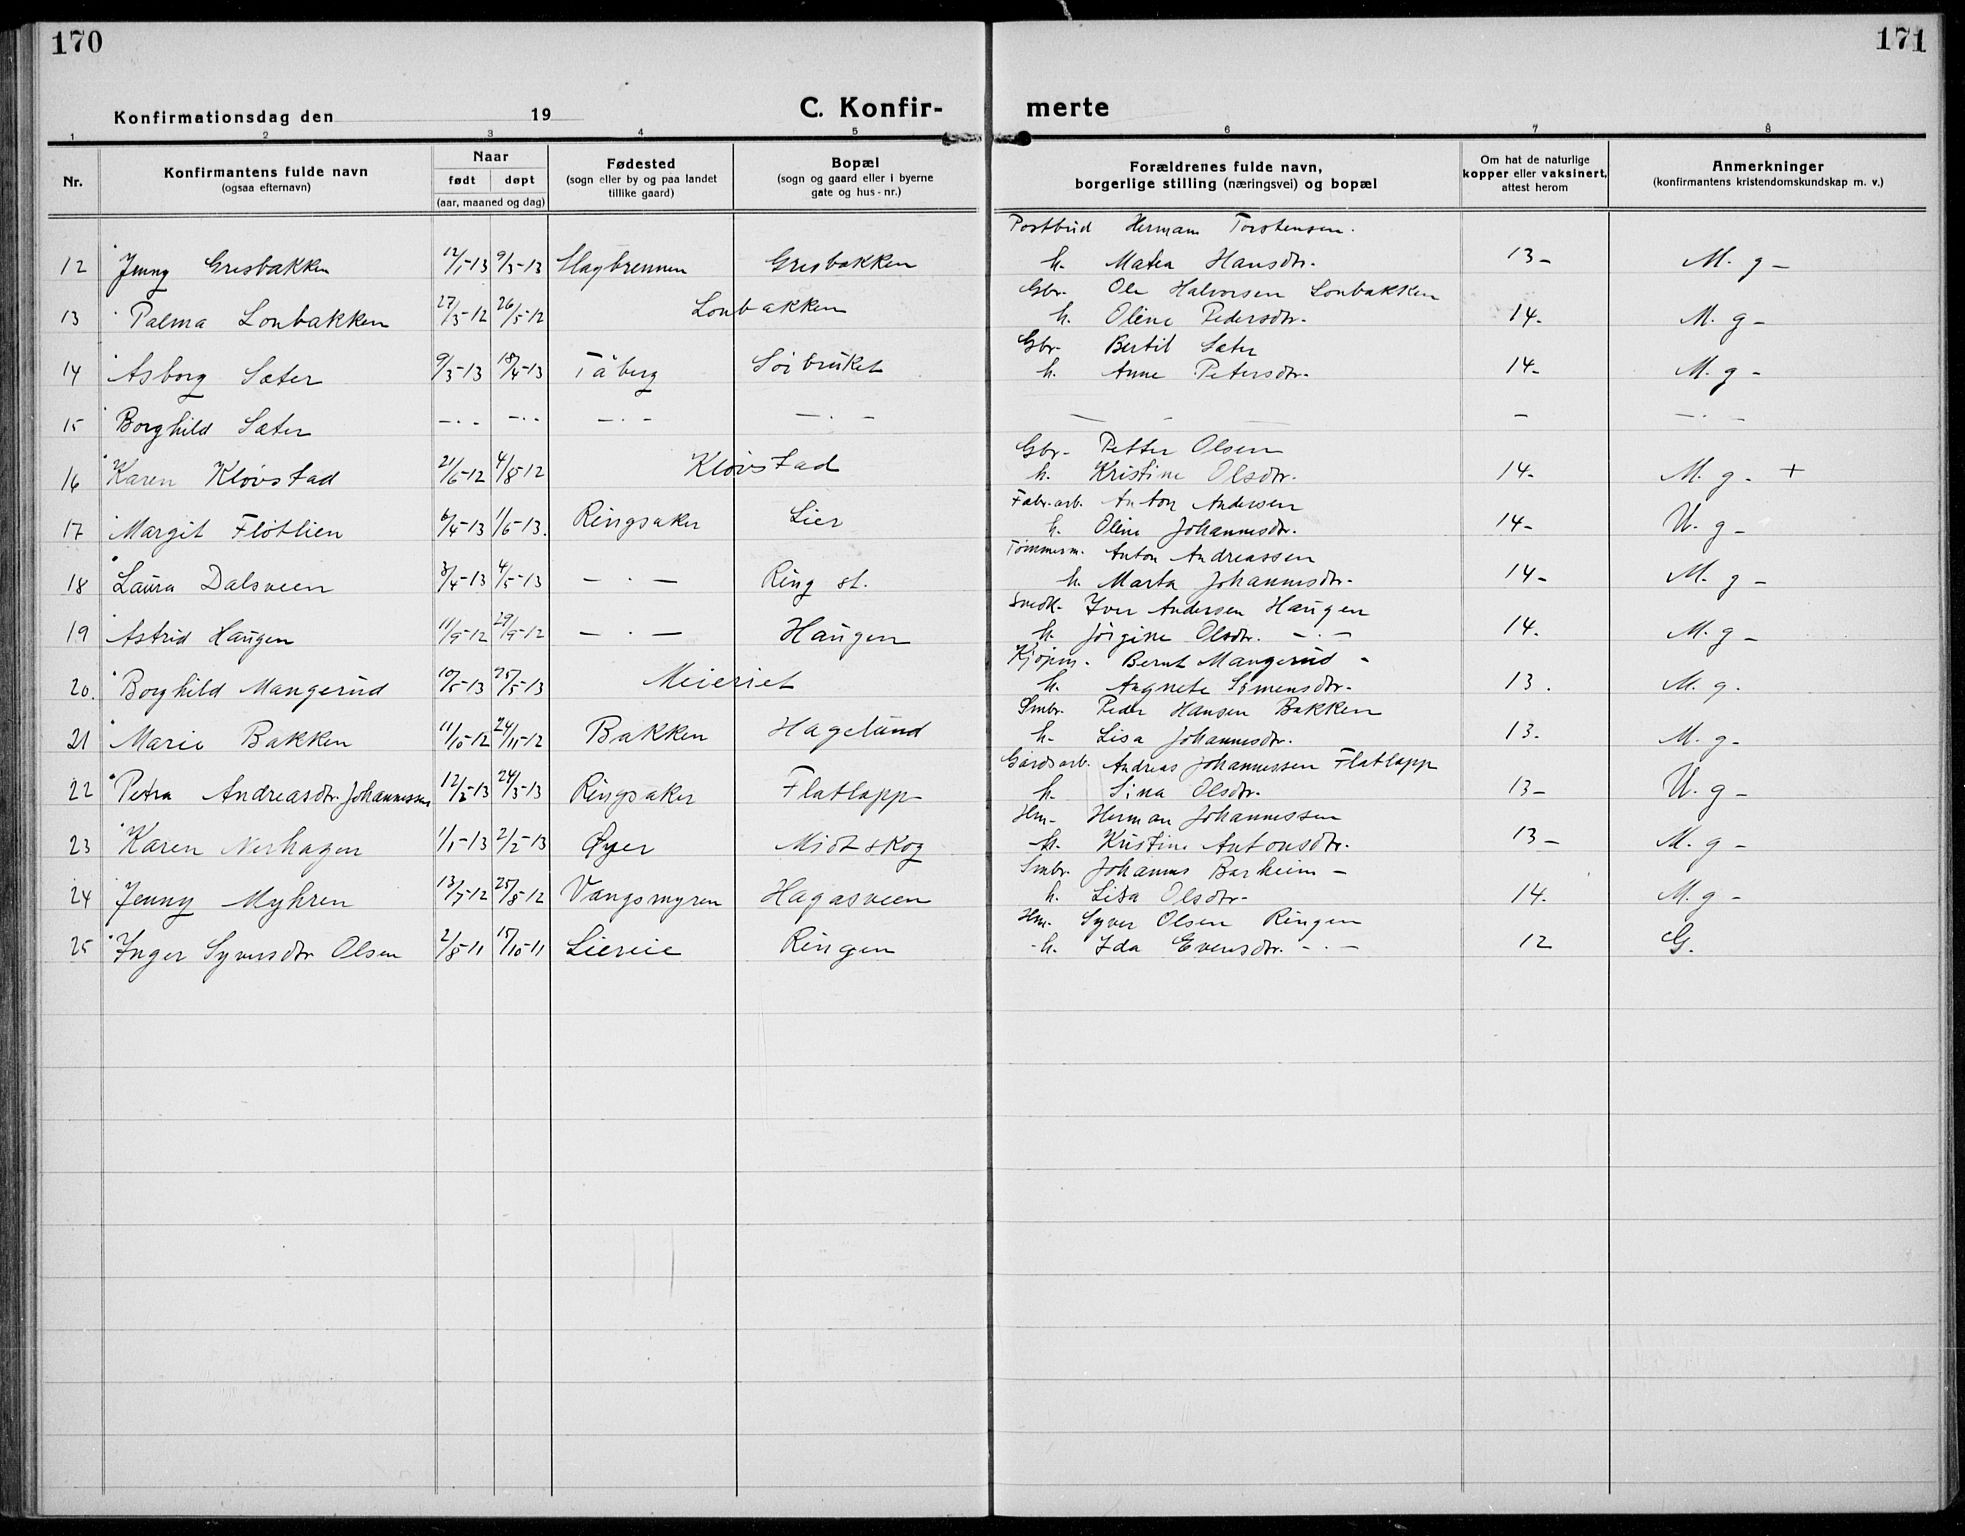 170
171
Konfirmationsdag den 19
C. Konfir-
merte
1 2 3 4 5 6 7 8
Nr.
Konfirmantens fulde navn
(ogsaa efternavn)
Naar
født døpt
(aar, maaned og dag)
Fødested
(sogn eller by og paa landet
tillike gaard)
Bopæl
(sogn og gaard eller i byerne
gate og hus-nr.)
Forældrenes fulde navn,
borgerlige stilling (næringsvei) og bopæl
Om hat de naturlige
kopper eller vaksinert,
attest herom
Anmerkninger
(konfirmantens kristendomskundskap m. v.)
Postbud Herman Torstensen.
12 Jenny Gresbakken 12/1-13 9/3-13 Slagbrennen Gresbakken h. Matea Hansdtr. 13- M. g-
Gbr. Ole Halvorsen Lonbakken
13 Palma Lonbakken 27/3-12 26/5-12 Lonbakken h. Oline Pedersdtr. 14- M. g-
Gbr. Bertil Sæter
14 Asborg Sæter 9/3-13 18/4-13 Tåberg Soibruket h. Anne Petersdtr. 14- M. g-
15 Borghild Sæter -.- -.- -.- -.- - - - -.-
Gbr- Petter Olsen
16 Karen Kløvstad 21/6-12 4/8-12 Kløvstad h. Kristine Olsdtr. 14- M. g. +
Fabr.arb. Anton Andersen
17 Margit Fløtlien 6/4-13 11/5-13. Ringsaker Lier h. Oline Johannesdtr. 14- U. g-
Tømmerm. Anton Andreassen
18 Laura Dalsveen 3/4-13 4/5-13 -.- Ring st. h. Marta Johannesdtr- 14- M. g-
Snedk- Iver Andersen Haugen
19 Astrid Haugen 11/9-12 29/9-12 -.- Haugen h. Jørgine Olsdtr. -.- 14. M. g-
Kjøpm. Bernt Mangerud -
20. Borghild Mangerud 10/5-13 25/5-13 Meieriet h. Angnete Simensdtr- 13. M. g.
Smbr. Peder Hansen Bakken
21 Marie Bakken 11/10-12 24/11-12 Bakken Hagelund h- Lisa Johannesdtr. 13. M. g-
Gårdsarb. Andreas Johannessen Flatlapp
22 Petra Andreasdtr. Johannessen 12/2-13 24/3-13 Ringsaker Flatlapp h. Sina Olsdtr. 13- U. g-
Hm- Herman Johannessen
23 Karen Nerhagen 1/1-13 2/2-13 Øyer Midtskog h. Kristine Antonsdtr. 13- M. g-
Smbr. Johannes Barheim -
24 Jenny Myhren 13/7-12 25/8-12 Vangsmyren Hagasveen h. Lisa Olsdtr- 14. M. g-
Hm- Syver Olsen Ringen
25 Inger Syversdtr Olsen 2/8-11 15/10-11 Liereie Ringen h. Ida Evensdtr. -.- 12 G.